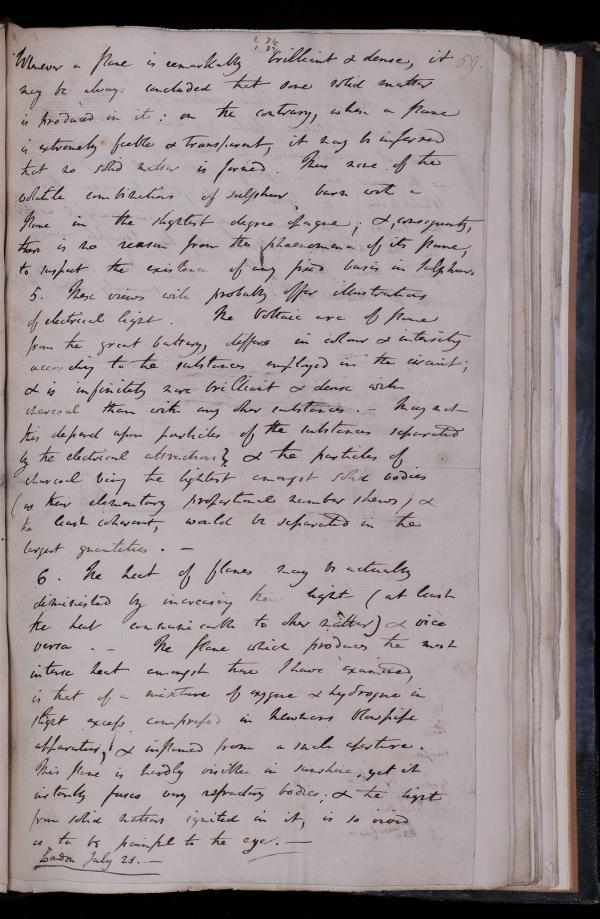 59.
Whenever a flame is remarkably brilliant & dense, it
may be always concluded that some solid matter
is produced in it: on the contrary, when a flame
is extremely feeble & transparent, it may be inferred
that no solid matter is formed. Thus none of the
volatile combinations of sulphur burn with a
flame in the slightest degree opaque; &, consequently,
there is no reason from the phaenomena of its flame,
to suspect the existence of any fixed basis in sulphur.
5. These views will probably offer illustrations
of electrical light. The Voltaic arc of flame
from the great battery, differs in colour & intensity
according to the substances employed in the circuit;
& is infinitely more brilliant & dense with
charcoal than with any other substances. – May not
this depend upon particles of the substances separated
by the electrical attractions? & the particles of
charcoal being the lightest amongst solid bodies
(as their elementary proportional number shews) &
the least coherent, would be separated in the
largest quantities. –
6. The heat of flames may be actually
diminished by increasing their light (at least
the heat communicable to other matter) & vice
versa. – The flame which produces the most
intense heat amongst those I have examined,
is that of a mixture of oxygene & hydrogene in
slight excess compressed in Newmans Blowpipe
apparatus, & inflamed from a small aperture.
This flame is hardly visible in sunshine, yet it
instantly fuses very refractory bodies; & the light
from solid matters ignited in it, is so vivid
as to be painful to the eye. –
London July 21. –